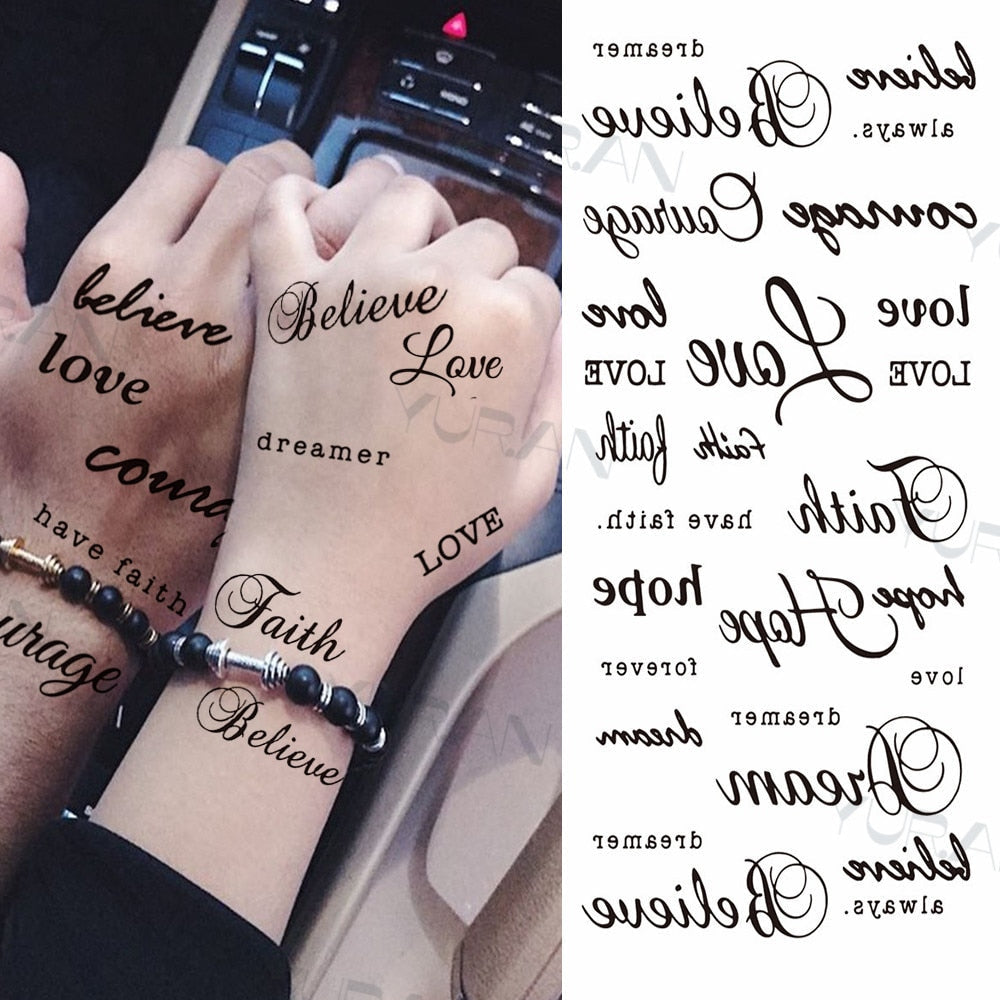 believe
love
coura
have faith
urage
Believe
Love
dreamer
LOVE
Faith
Believe
MENU
YURAN
dreamer
Believe believe
always.
Courage courage
love Love love
LOVE LOVE
faith faith
Faith
have faith.
hope Hope hope
forever love
dream dreamer
Dream
dreamer
Believe believe
always.
YURAN